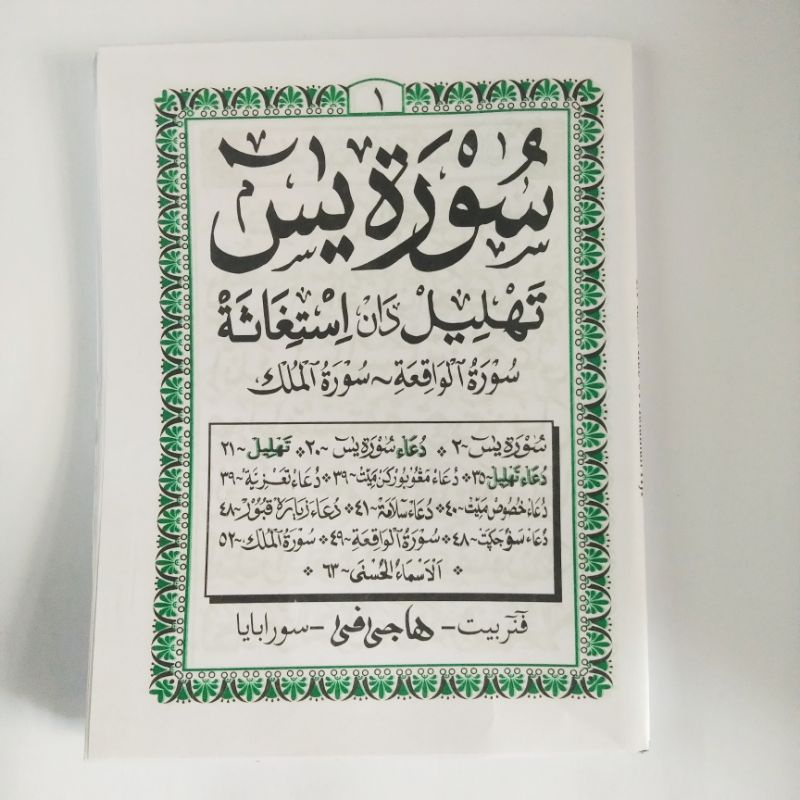 ١
سُوْرَة يٰسٓ
تَهْلِيْل دَانْ اِسْتِغَاثَةْ
سُوْرَةُ ٱلْوَاقِعَةِ ~ سُوْرَةُ ٱلْمُلْكِ
سُوْرَة يٰسٓ ~ ٢ ٠ دُعَاء سُوْرَة يٰسٓ ~ ٢٠ ٠ تَهْلِيْل ~ ٢١
دُعَاء تَهْلِيْل ~ ٣٥ ٠ دُعَاء مَڠُوبُورْكَنْ مَيِّتْ ~ ٣٩ ٠ دُعَاء تَعْزِيَةْ ~ ٣٩
دُعَاء خُصُوْصْ مَيِّتْ ~ ٤٠ ٠ دُعَاء سَلَامَةْ ~ ٤١ ٠ دُعَاء زِيَارَةْ قُبُوْرْ ~ ٤٨
دُعَاء سَؤُجَكَتْ ~ ٤٨ ٠ سُوْرَةُ ٱلْوَاقِعَةِ ~ ٤٩ ٠ سُوْرَةُ ٱلْمُلْكِ ~ ٥٢
٠ اَلْاَسْمَاءُ الْحُسْنٰى ~ ٦٣ ٠
ڤنربيت - هاجى فى - سورابايا